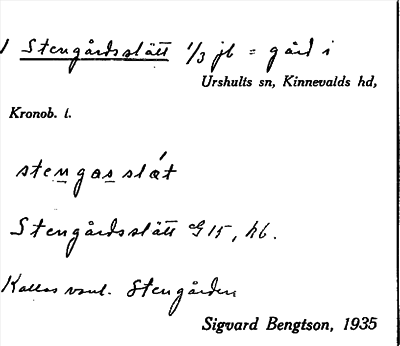 Stengårdsslätt 1/3 jb = gård i
Urshults sn, Kinnevalds hd,
Kronob. l.
stengasslát
Stengårdsslätt G 15, hb.
Kallas vanl. Stengården
Sigvard Bengtson, 1935